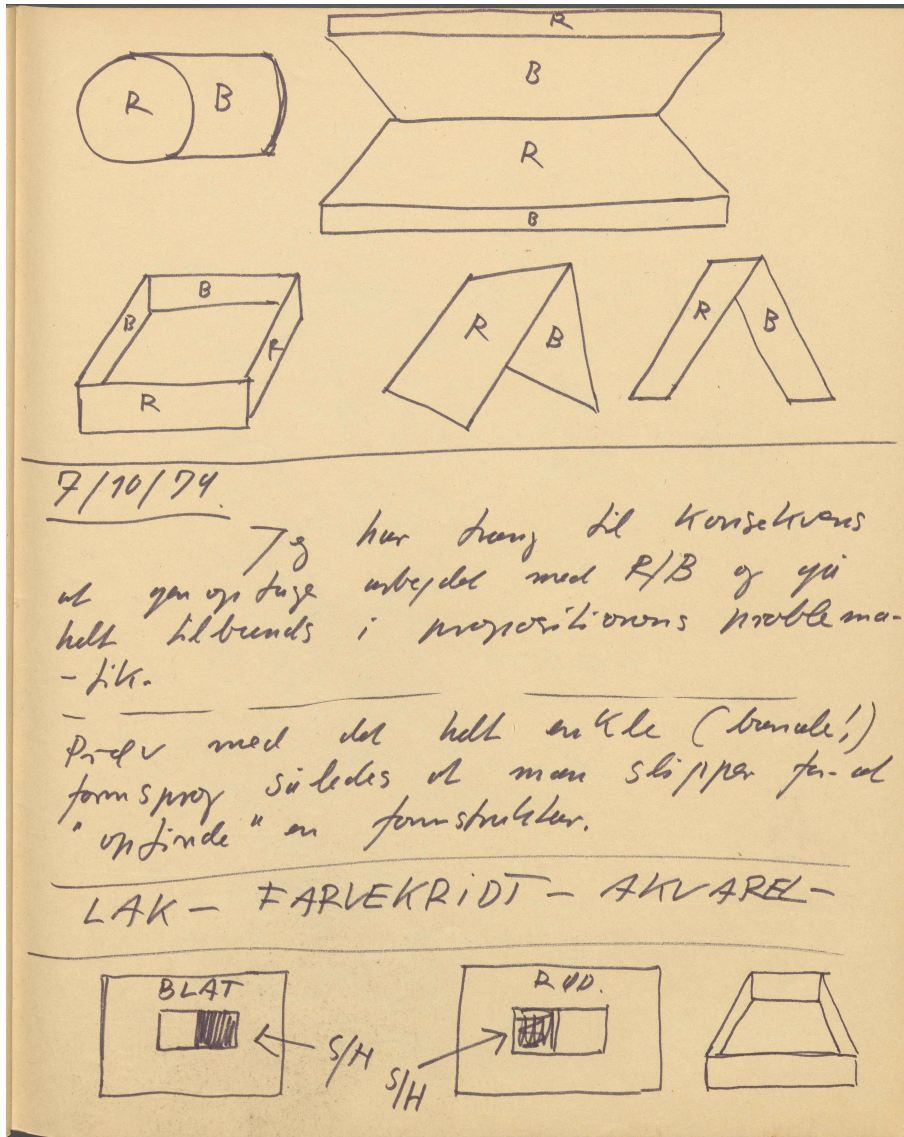 R
B
R
B
R
B
B
B
R
R
R
B
R
B
7/10/74.
Jeg har trang til konsekvens
at genoptage arbejdet med R/B og gå
helt tilbunds i propositionens problema-
-tik.
Prøv med det helt enkle (banale!)
formsprog således at man slipper for at
"opfinde" en formstruktur.
LAK - FARVEKRIDT - AKVAREL -
BLÅT
RØD.
S/H
S/H